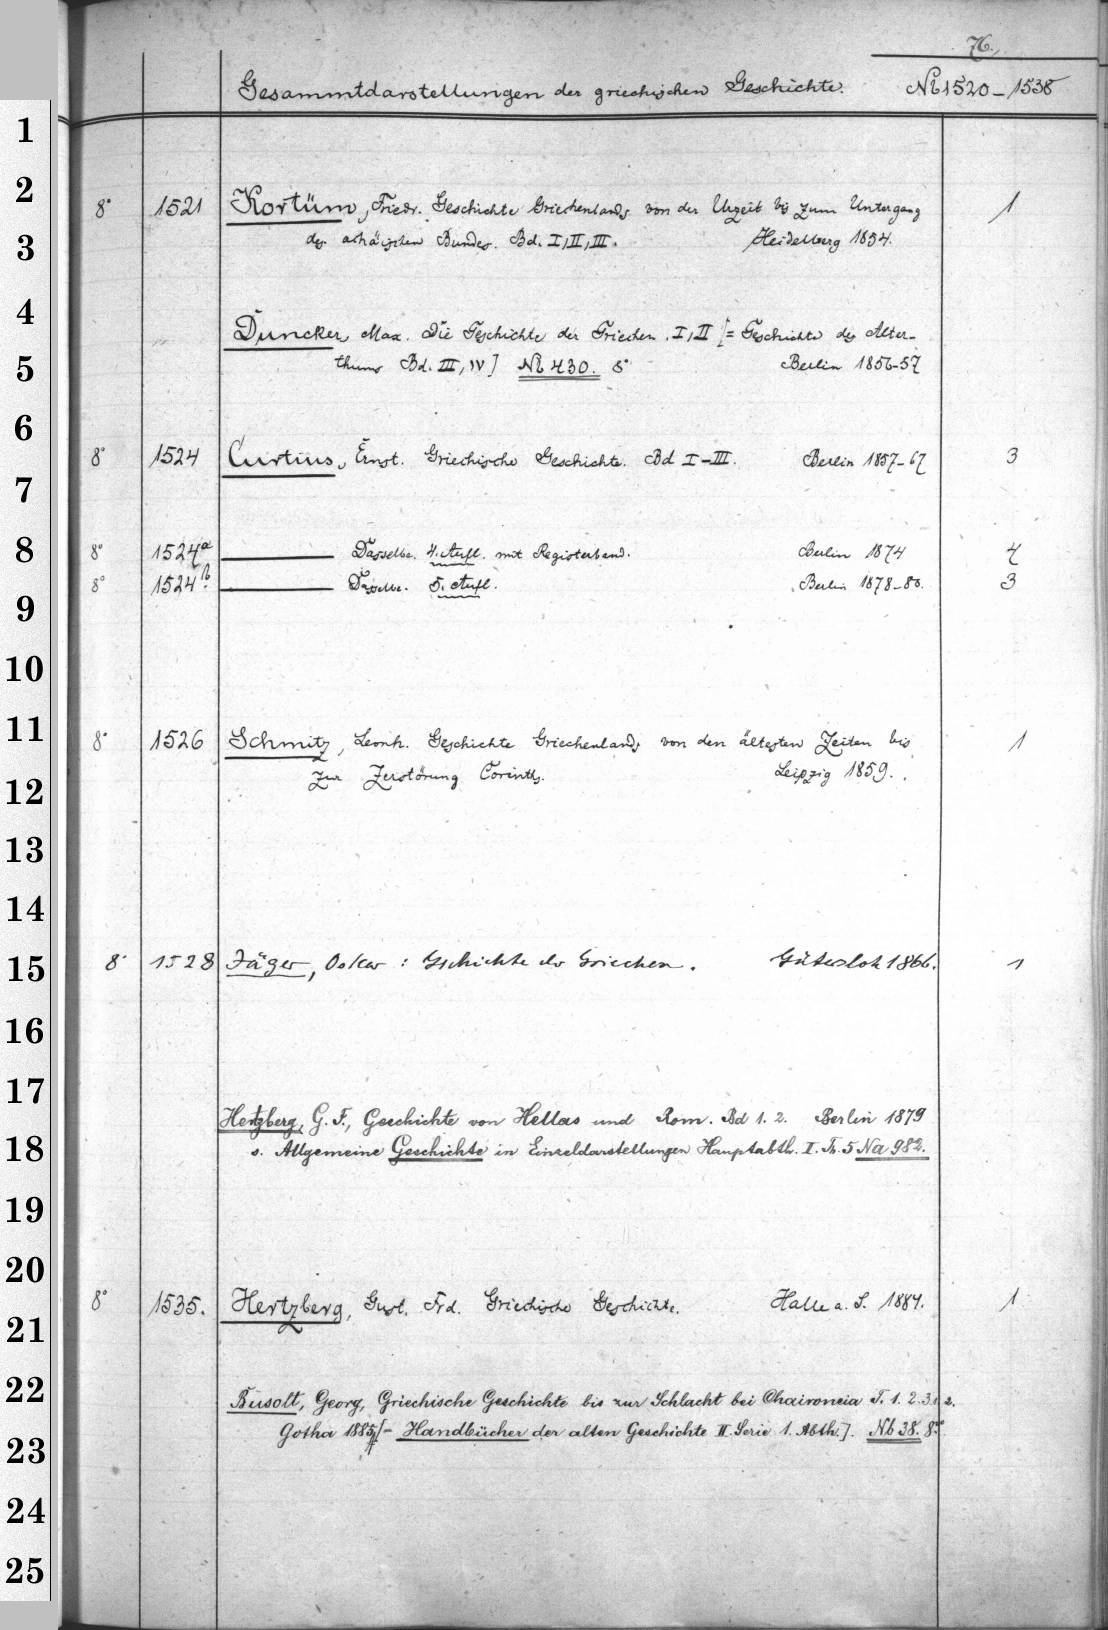 76.
Gesammtdarstellungen der griechischen Geschichte. Nb 1520-1538
1
2
8° 1521 Kortüm, Friedr. Geschichte Griechenlands von der Urzeit bis zum Untergang 1
3
des achäischen Bundes. Bd. I, II, III. Heidelberg 1854.
4
Duncker, Max. Die Geschichte der Griechen. I, II [= Geschichte des Alter-
5
thums Bd. III, IV] Nb 430. 8° Berlin 1856-57
6
8° 1524 Curtius, Ernst. Griechische Geschichte. Bd I-III. Berlin 1857-67 3
7
8
8° 1524a ——— Dasselbe. 4. Aufl. mit Registerband. Berlin 1874 4
8° 1524b. ——— Dasselbe. 5. Aufl. Berlin 1878-80. 3
9
10
11
8° 1526 Schmitz, Leonh. Geschichte Griechenlands von den ältesten Zeiten bis 1
zur Zerstörung Corinths. Leipzig 1859.
12
13
14
15
8° 1528 Jäger, Oskar: Gschichte der Griechen. Gütersloh 1866. 1
16
17
Hertzberg, G. F., Geschichte von Hellas und Rom. Bd 1. 2. Berlin 1879
18
s. Allgemeine Geschichte in Einzeldarstellungen Hauptabth. I. Th. 5 Na 982.
19
20
8° 1535. Hertzberg, Gust. Frd. Griechische Geschichte. Halle a. S. 1884. 1
21
22
Busolt, Georg, Griechische Geschichte bis zur Schlacht bei Chaironeia T. 1. 2. 3,1. 2.
23
Gotha 1885ff [- Handbücher der alten Geschichte II. Serie 1. Abth.]. Nb 38. 8°
24
25